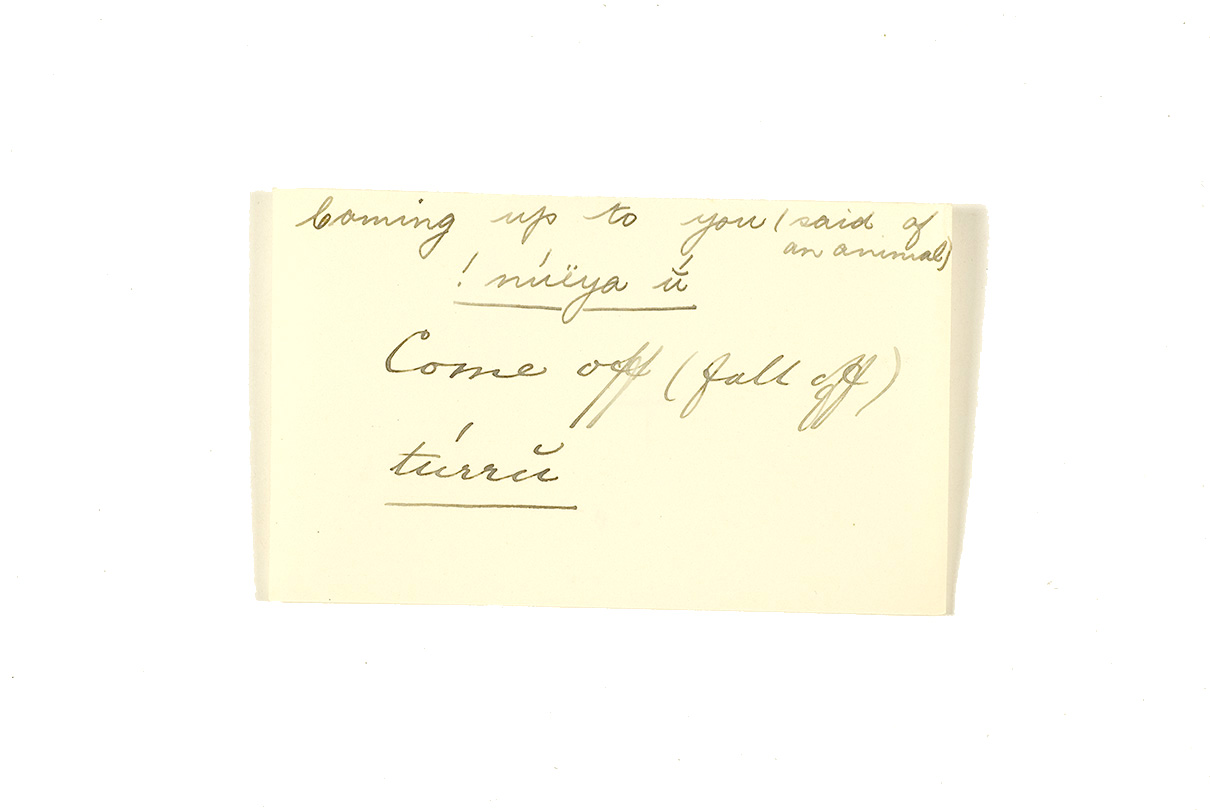 Coming up to you (said of
an animal)
! núëya ŭ́
Come off (fall off)
túrrŭ